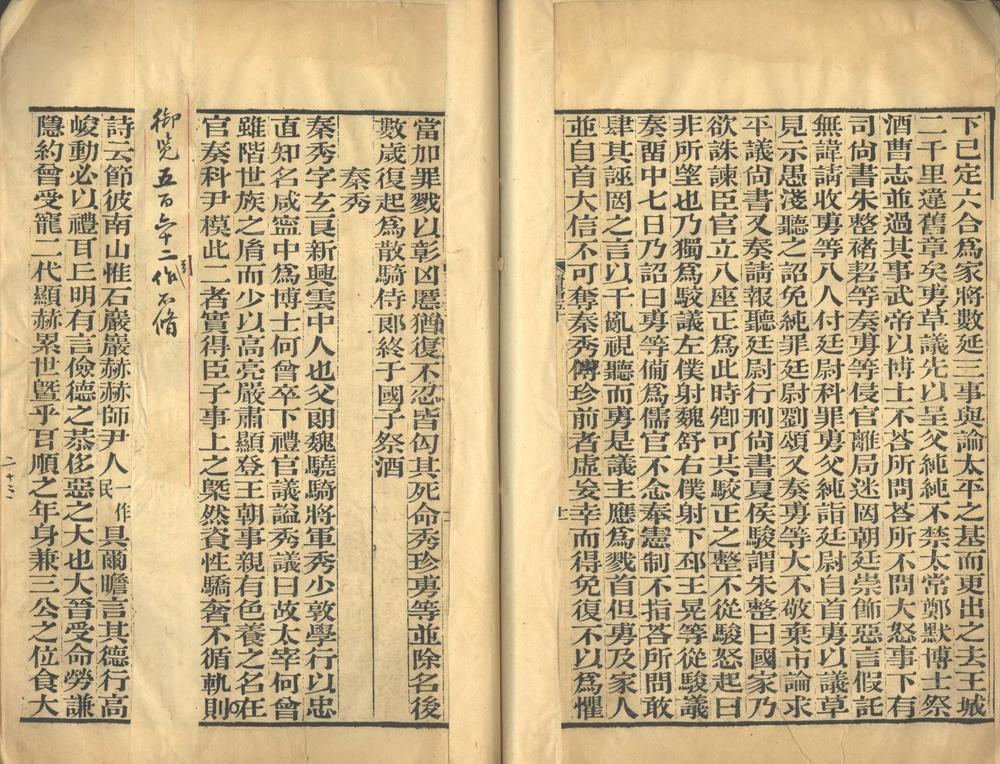 下已定六合爲家將數延三事與論太平之基而更出之去王城
二千里違舊章矣旉草議先以呈父純純不禁太常鄭默博士祭
酒曹志並過其事武帝以博士不荅所問荅所不問大怒事下有
司尙書朱整褚䂮等奏旉等侵官離局迷罔朝廷崇飾惡言假託
無諱請收旉等八人付廷尉科罪旉父純詣廷尉自首旉以議草
見示愚淺聽之詔免純罪廷尉劉頌又奏旉等大不敬棄市論求
平議尙書又奏請報聽廷尉行刑尙書夏侯駿謂朱整曰國家乃
欲誅諫臣官立八座正爲此時卿可共駮正之整不從駿怒起曰
非所望也乃獨爲駮議左僕射魏舒右僕射下邳王晃等從駿議
奏留中七日乃詔曰旉等備爲儒官不念奉憲制不指荅所問敢
肆其誣罔之言以干亂視聽而旉是議主應爲戮首但旉及家人
並自首大信不可奪秦秀傅珍前者虛妄幸而得免復不以爲懼
當加罪戮以彰凶慝猶復不忍皆匃其死命秀珍旉等並除名後
數歲復起爲散騎侍郞終于國子祭酒
秦秀
秦秀字玄良新興雲中人也父朗魏驍騎將軍秀少敦學行以忠
直知名咸寧中爲博士何曾卒下禮官議謚秀議曰故太宰何曾
雖階世族之胤而少以高亮嚴肅顯登王朝事親有色養之名在
官奏科尹模此二者實得臣子事上之槩然資性驕奢不循軌則
御覽五百六十二作不脩
詩云節彼南山惟石巖巖赫赫師尹人一作民具爾瞻言其德行高
峻動必以禮耳丘明有言儉德之恭侈惡之大也大晉受命勞謙
隱約曾受寵二代顯赫累世曁乎耳順之年身兼三公之位食大